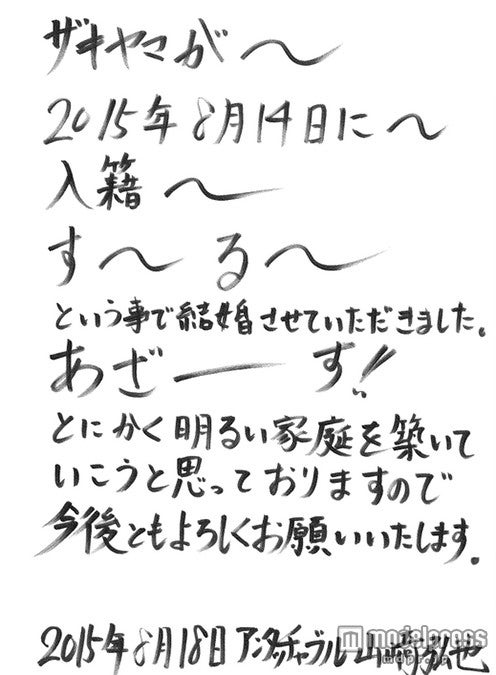 ザキヤマが〜
2015年8月14日に〜
入籍〜
す〜る〜
という事で結婚させていただきました。
あざーーす!!
とにかく明るい家庭を築いて
いこうと思っておりますので
今後ともよろしくお願いいたします。
2015年8月18日アンタッチャブル山崎弘也
modelpress
mdpr.jp